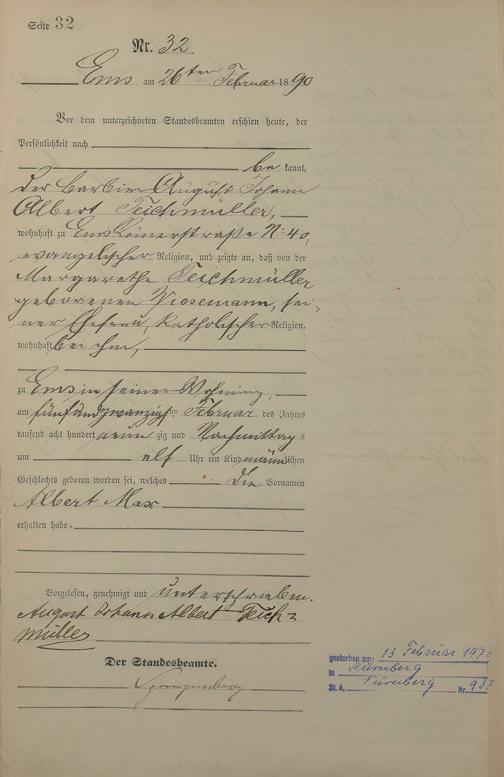 Seite 32
Nr. 32.
Ems am 26ten Februar 1890
Vor dem unterzeichneten Standesbeamten erschien heute, der
Persönlichkeit nach
be kannt,
der Barbier August Johann
Albert Teichmüller,
wohnhaft zu Ems Römerstraße No 40,
evangelischer Religion, und zeigte an, daß von der
Margarethe Teichmüller
geborenen Wiesemann, sei-
ner Ehefrau, katholischer Religion,
wohnhaft bei ihm,
zu Ems in seiner Wohnung,
am fünfundzwanzigsten Februar des Jahres
tausend acht hundert neunzig und Nachmittags
um elf Uhr ein Kind männlichen
Geschlechts geboren worden sei, welches die Vornamen
Albert Max
erhalten habe.
Vorgelesen, genehmigt und unterschrieben.
August Johann Albert Teich-
müller
Der Standesbeamte.
gestorben am: 13 Februar 197
in Nürnberg
St. A. Nürnberg Nr. 937